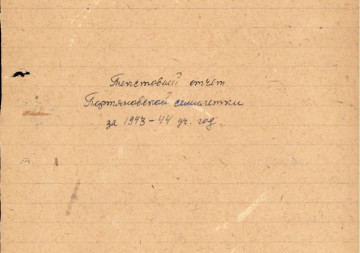 Текстовый отчет
Портяновской семилетки
за 1943-44 уч. год.